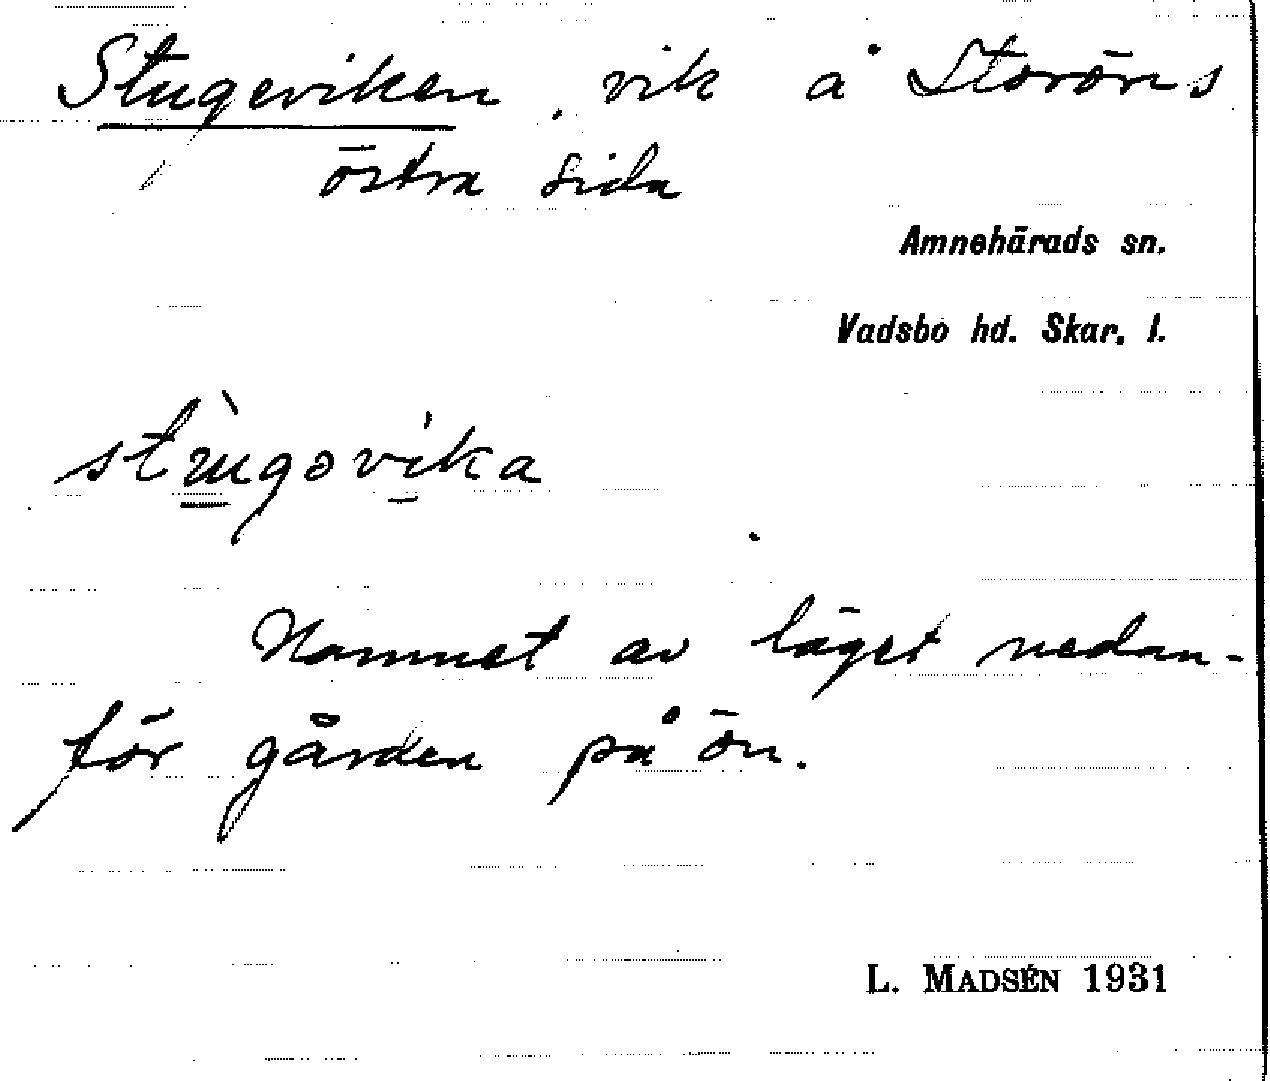 Stugeviken, vik å Storöns
östra sida
Amnehärads sn.
Vadsbo hd. Skar. l.
stùgovíka
Namnet av läget nedan-
för gården på ön.
L. MADSÉN 1931